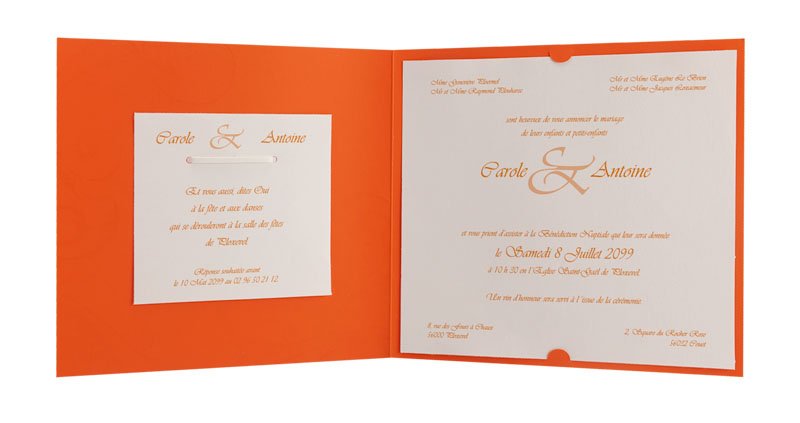 Carole & Antoine
Et vous aussi, dites Oui
à la fête et aux danses
qui se dérouleront à la salle des fêtes
de Plovevel.
Réponse souhaitée avant
le 10 Mai 2099 au 02 96 50 21 12
Mme Geneviève Plovevel
Mr et Mme Raymond
Mr et Mme Eugène Le Bihan
Mr et Mme Jacques
sont heureux de vous annoncer le mariage
de leurs enfants et petits-enfants
Carole & Antoine
et vous prient d'assister à la Bénédiction Nuptiale qui leur sera donnée
le Samedi 8 Juillet 2099
à 10 h 30 en l'Eglise Saint-Gaël de Plovevel.
Un vin d'honneur sera servi à l'issue de la cérémonie.
8, rue des Fours à Chaux
56000 Plovevel
2, Square du Rocher Rose
56022